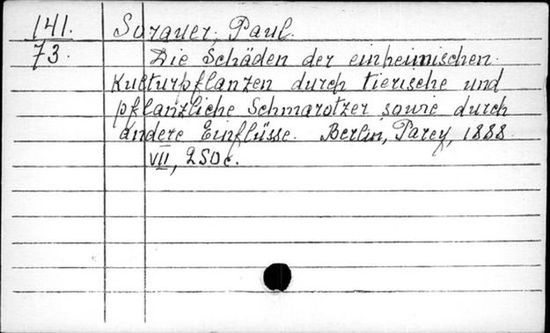 141. Sorauer, Paul.
73. Die Schäden der einheimischen
Kulturpflanzen durch tierische und
pflanzliche Schmarotzer sowie durch
andere Einflüsse. Berlin, Parey, 1888
VII, 250 c.